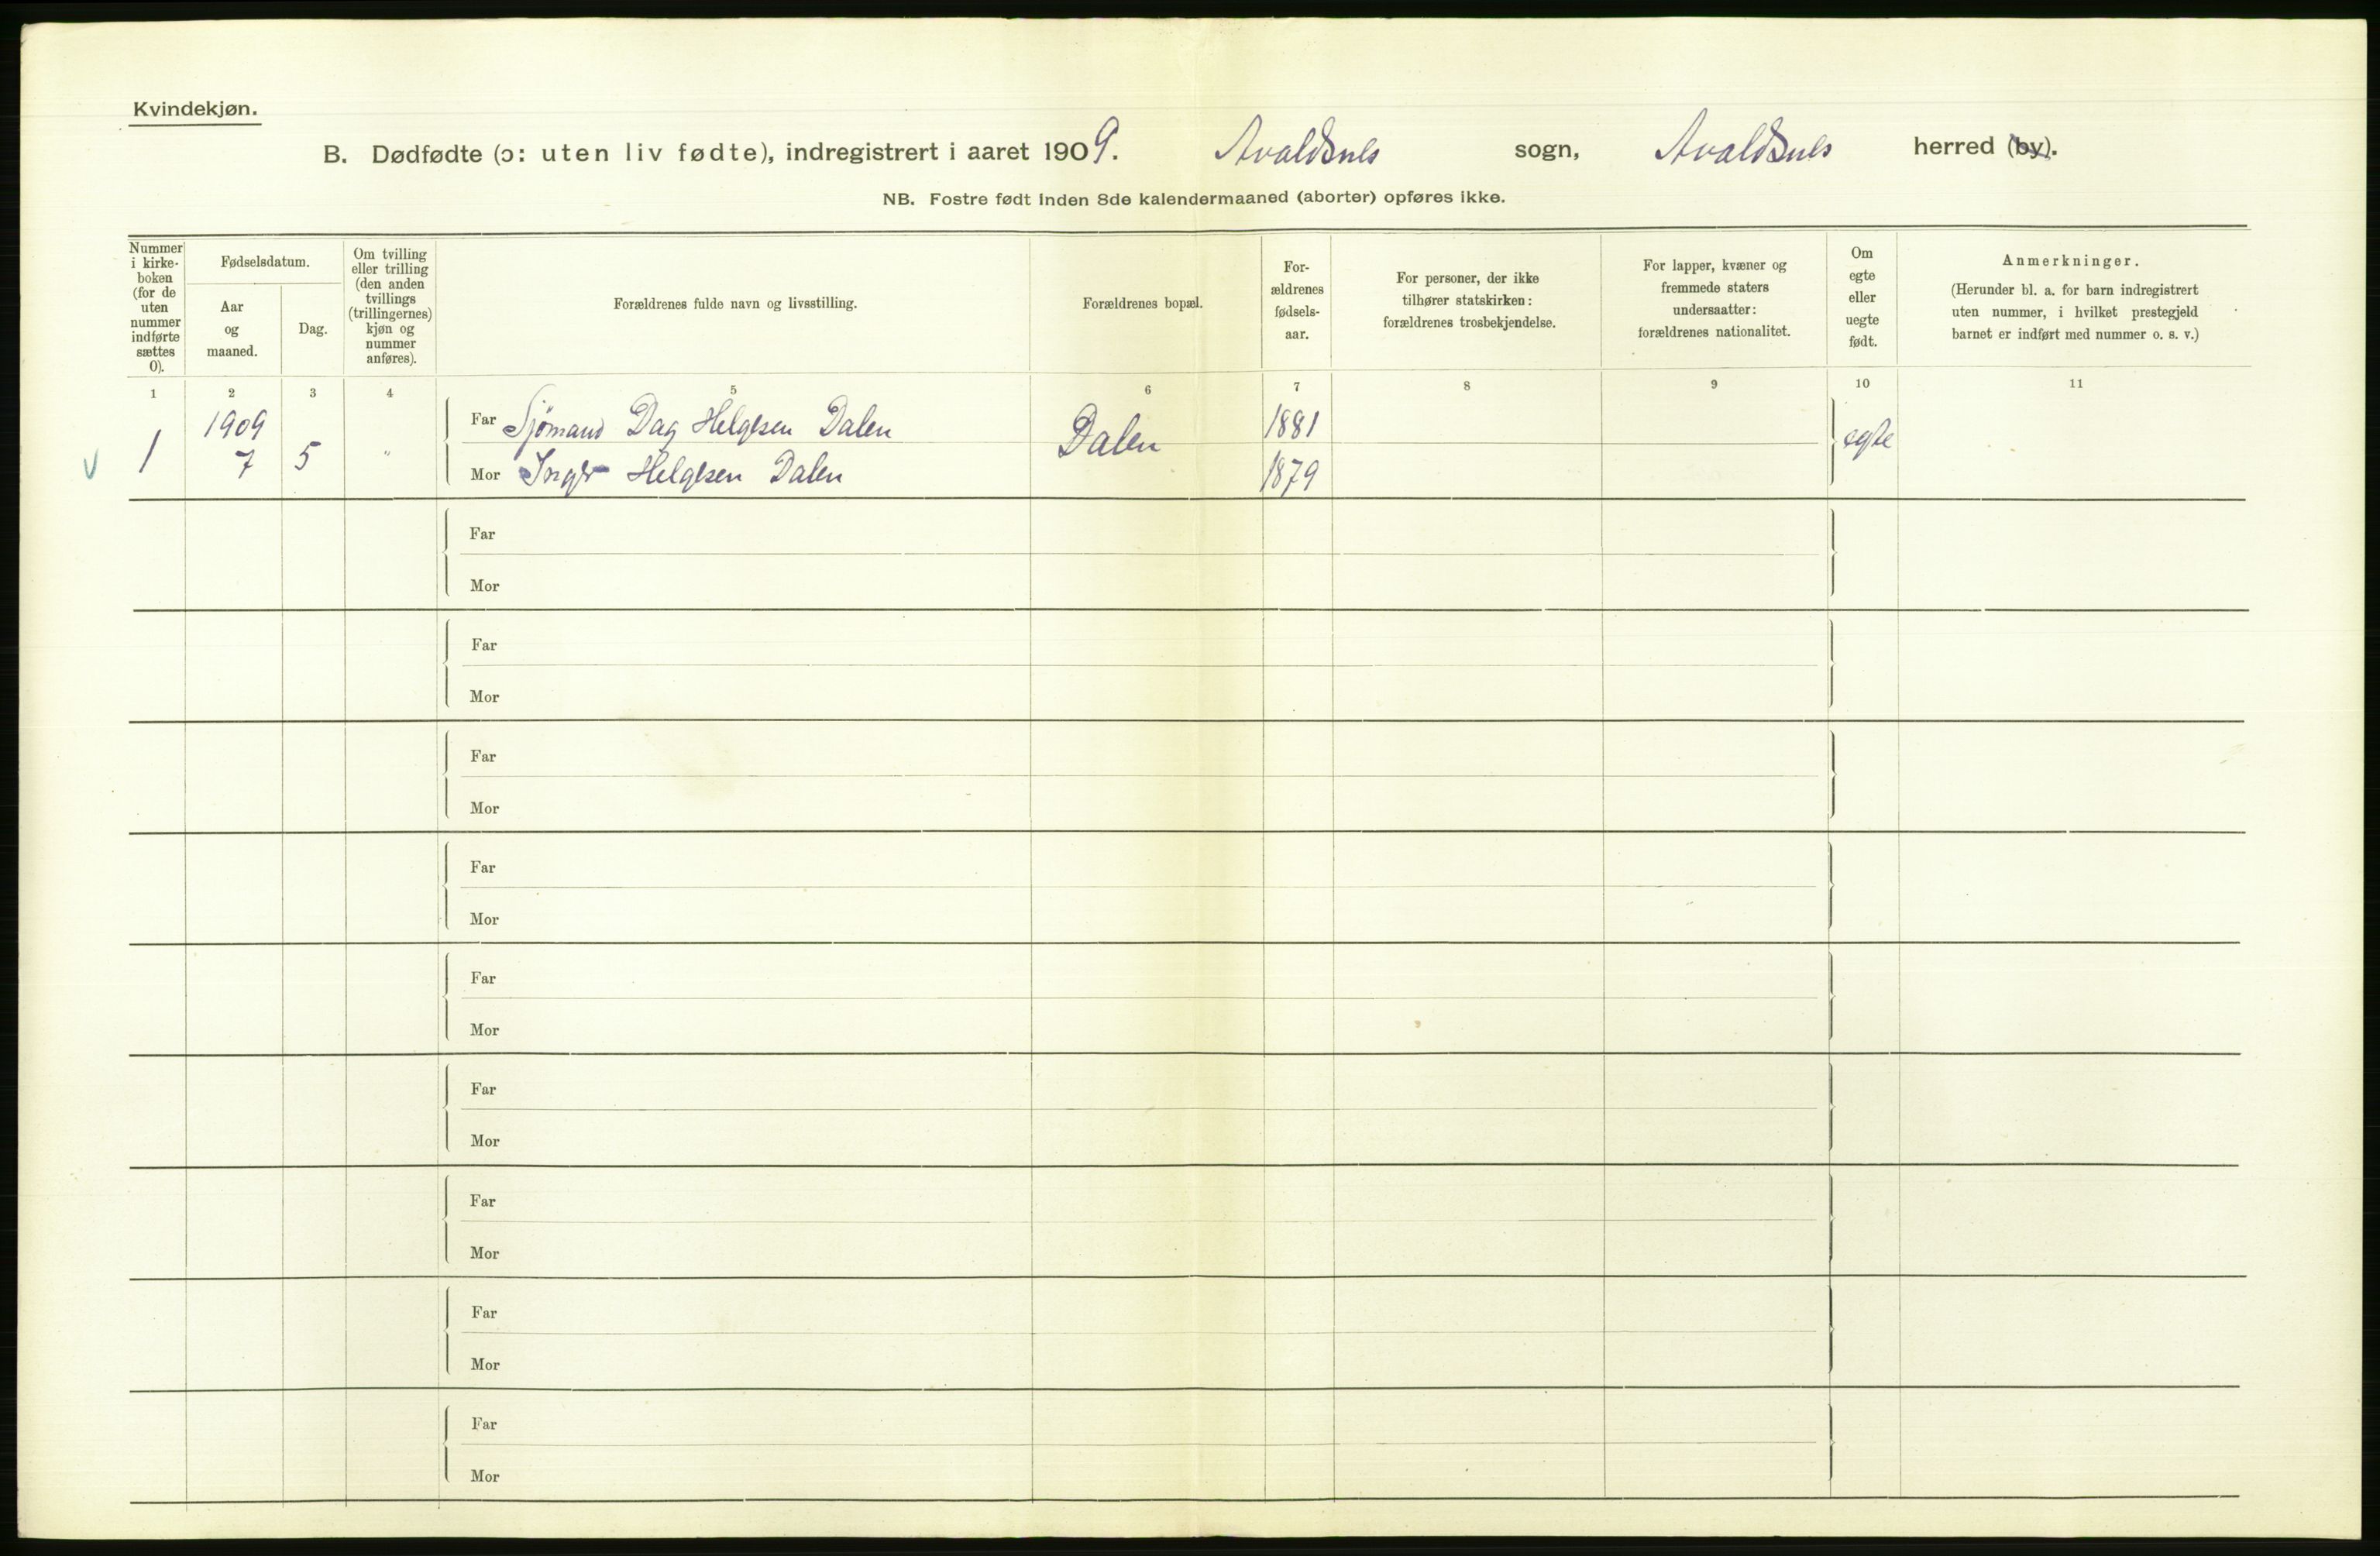 Kvindekjøn.
B. Dødfødte (ɔ: uten liv fødte), indregistrert i aaret 1909. Avaldsnes sogn, Avaldsnes herred (by).
NB. Fostre født inden 8de kalendermaaned (aborter) opføres ikke.
Nummer i kirke-boken (for de uten nummer indførte sættes 0).
Fødselsdatum.
Aar og maaned.
Dag.
Om tvilling eller trilling (den anden tvillings (trillingernes) kjøn og nummer anføres).
Forældrenes fulde navn og livsstilling.
Forældrenes bopæl.
For-ældrenes fødsels-aar.
For personer, der ikke tilhører statskirken: forældrenes trosbekjendelse.
For lapper, kvæner og fremmede staters undersaatter: forældrenes nationalitet.
Om egte eller uegte født.
Anmerkninger.
(Herunder bl. a. for barn indregistrert uten nummer, i hvilket prestegjeld barnet er indført med nummer o. s. v.)
1 2 3 4 5 6 7 8 9 10 11
1909 Far Sjømand Dag Helgesen Dalen 1881
V 1 7 5 " Dalen egte
Mor Inger Helgesen Dalen 1879
Far
Mor
Far
Mor
Far
Mor
Far
Mor
Far
Mor
Far
Mor
Far
Mor
Far
Mor
Far
Mor